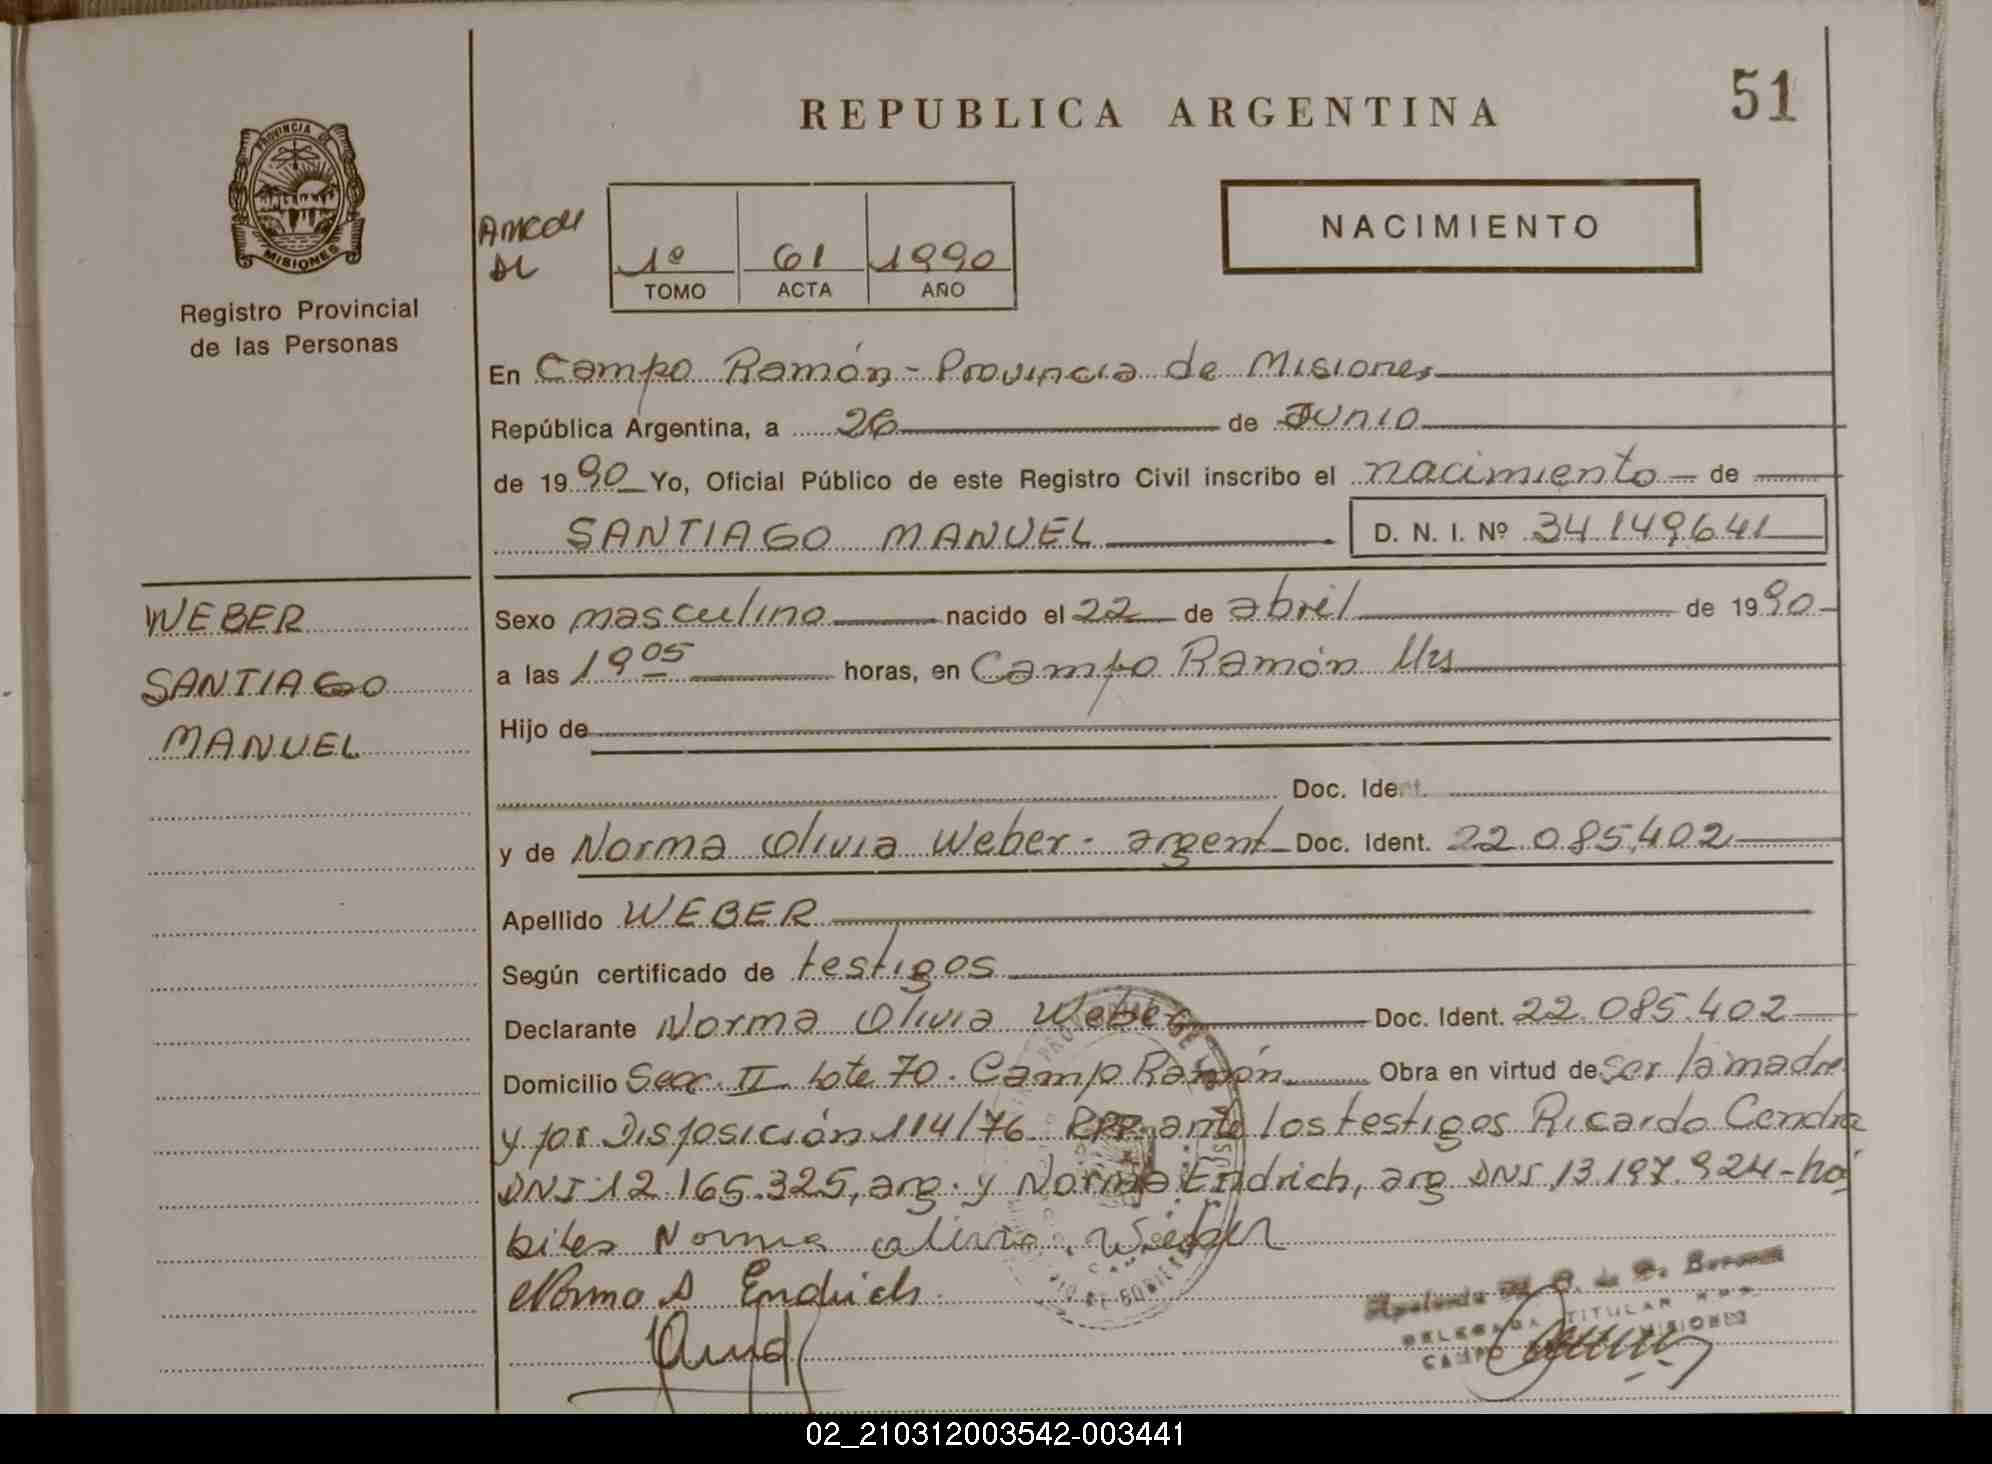 REPUBLICA ARGENTINA
51
PROVINCIA DE
MISIONES
Registro Provincial
de las Personas
1º 61 1990
TOMO ACTA AÑO
NACIMIENTO
En Campo Ramón - Provincia de Misiones
República Argentina, a 26 de Junio
de 1990 Yo, Oficial Público de este Registro Civil inscribo el nacimiento de
SANTIAGO MANUEL D. N. I. Nº 34.149.641
WEBER
SANTIAGO
MANUEL
Sexo masculino nacido el 22 de abril de 1990
a las 19 05 horas, en Campo Ramón Mis
Hijo de
Doc. Ident.
y de Norma Olivia Weber - argent Doc. Ident. 22.085.402
Apellido WEBER
Según certificado de testigos
Declarante Norma Olivia Weber Doc. Ident. 22.085.402
Domicilio Secc. II Lote 70. Campo Ramón Obra en virtud de ser la madre
y por Disposición 114/76 RPP. ante los testigos Ricardo Cendra
DNI 12.165.325, arg. y Norma Endrich, arg DNI 13.197.924 - há
biles Norma Olivia Weber
Norma S Endrich
DELEGADA TITULAR
CAMPO MISIONES
02_210312003542-003441